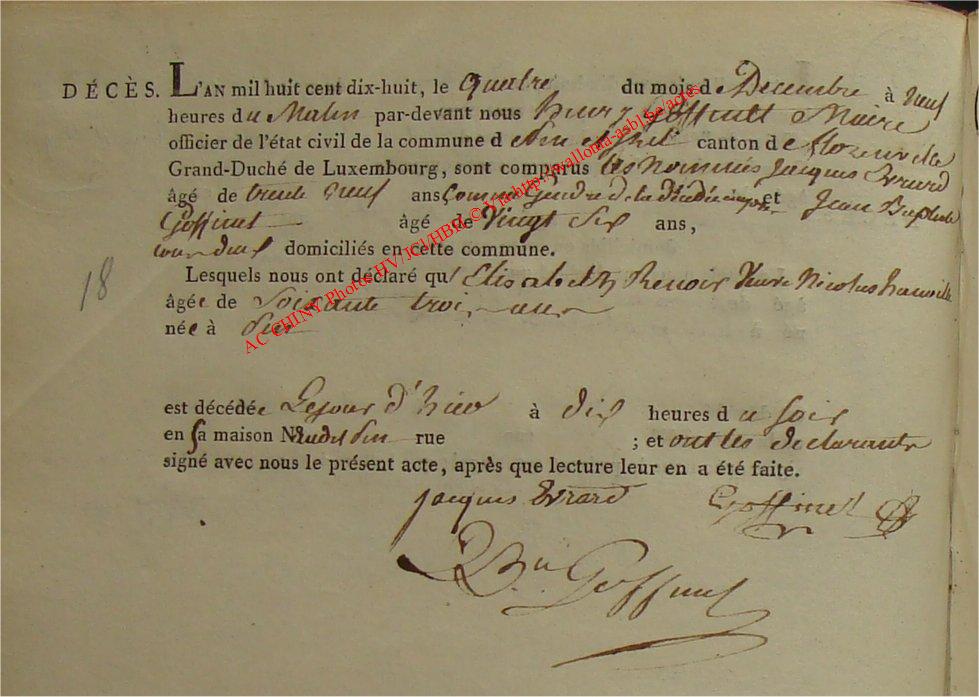 DÉCÈS. L'AN mil huit cent dix-huit, le quatre du mois de Decembre à neuf
heures du Matin par-devant nous henry Goffinet Maire
officier de l'état civil de la commune d canton de florenville
Grand-Duché de Luxembourg, sont comparus les Nommés Jacques Evrard
âgé de trente neuf ans Comme Gendre de la et Jean Baptiste
Goffinet âgé de Vingt Six ans,
tous deux domiciliés en cette commune.
Lesquels nous ont déclaré qu' Elisabeth Renoir Veuve Nicolas
18
âgée de Soixante trois ans
née à
est décédée Le jour d'hier à dix heures du soir
en sa maison N rue ; et ont les declarants
signé avec nous le présent acte, après que lecture leur en a été faite.
jacques Evrard Goffinet
Goffinet
AC CHINY Photos HV/JCI/HBR © Via http:\\wallonia-asbl.be/actes